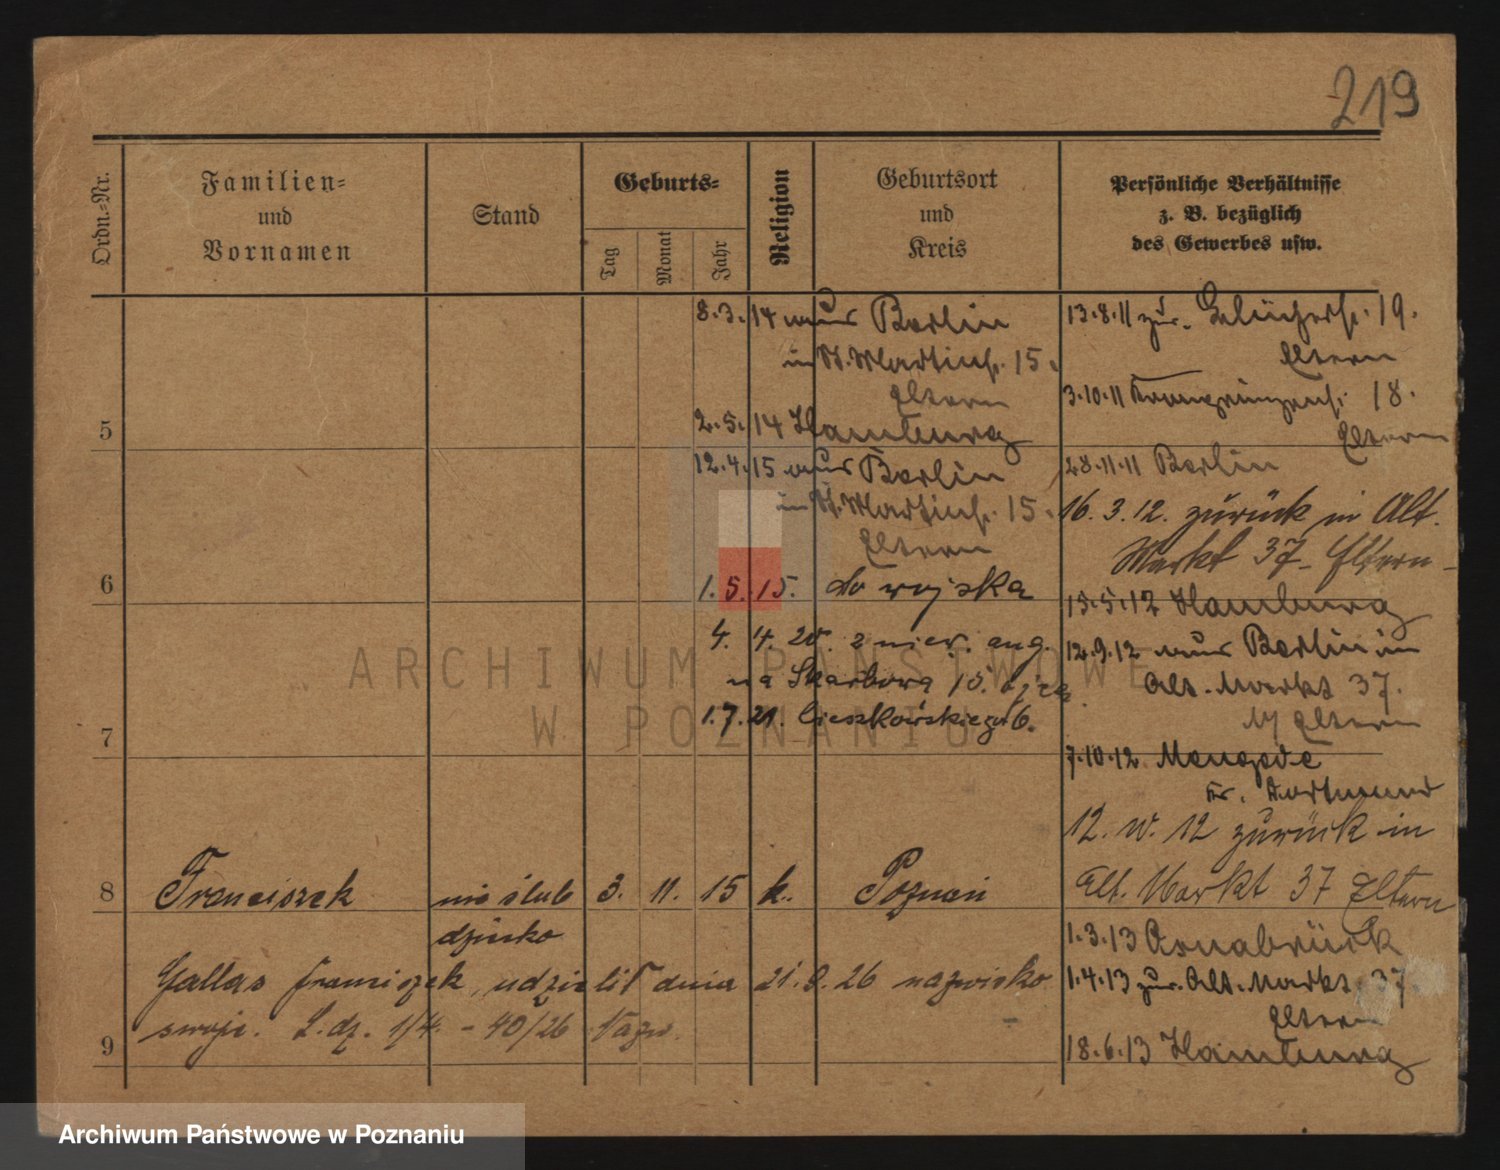 219
Ordn.=Nr.
Familien=
und
Vornamen
Stand
Geburts=
Tag
Monat
Jahr
Religion
Geburtsort
und
Kreis
Persönliche Verhältnisse
z. B. bezüglich
des Gewerbes usw.
8.3.14 aus Berlin
in St. Martinstr. 15.
Eltern
2.5.14 Hamburg
12.4.15 aus Berlin
in St. Martinstr. 15.
Eltern
1.5.15. do wojska
4. 4. 20. z niew. ang.
na Skarbowa 15. ojca
1.7.21. Cieszkowskiego 6.
13.8.11 zur. 19.
Eltern
3.10.11 Kronprinzenstr. 18.
Eltern
28.11.11 Berlin
16.3.12. zurück in Alt.
Markt 37 - Eltern -
15.5.12 Hamburg
12.9.12 aus Berlin in
Alt. Markt 37.
Eltern
7.10.12 Mengede
Kr. Dortmund
12. 12 zurück in
Alt. Markt 37 Eltern
1.3.13 Osnabrück
1.4.13 zur. Alt. Markt 37
Eltern
18.6.13 Hamburg
5
6
7
8 Franciszek nieślub 3. 11. 15 k. Poznań
dziecko
Gallas Franciszek, udzielił dnia 21.8.26 nazwisko
swoje. L.dz. 1/4. - 40/26 Nazw.
9
ARCHIWUM PAŃSTWOWE
W POZNANIU
Archiwum Państwowe w Poznaniu